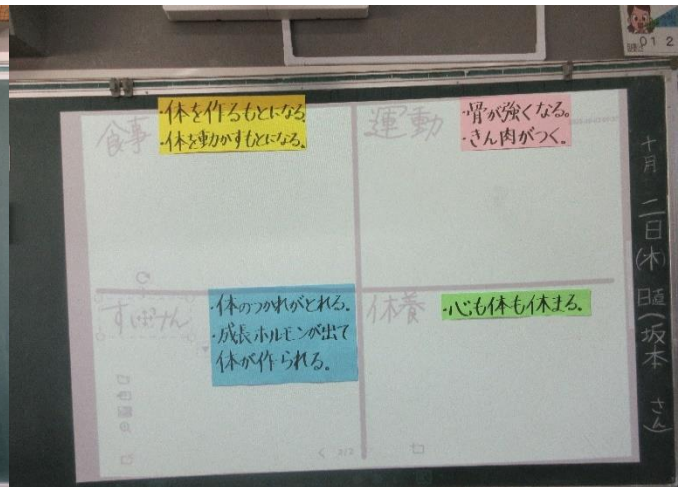 食事
・体を作るもとになる。
・体を動かすもとになる。
運動
・骨が強くなる。
・きん肉がつく。
・体のつかれがとれる。
・成長ホルモンが出て
体が作られる。
休養
・心も体も休まる。
2/2
十月二日(木)
日直(坂本 さん)
012